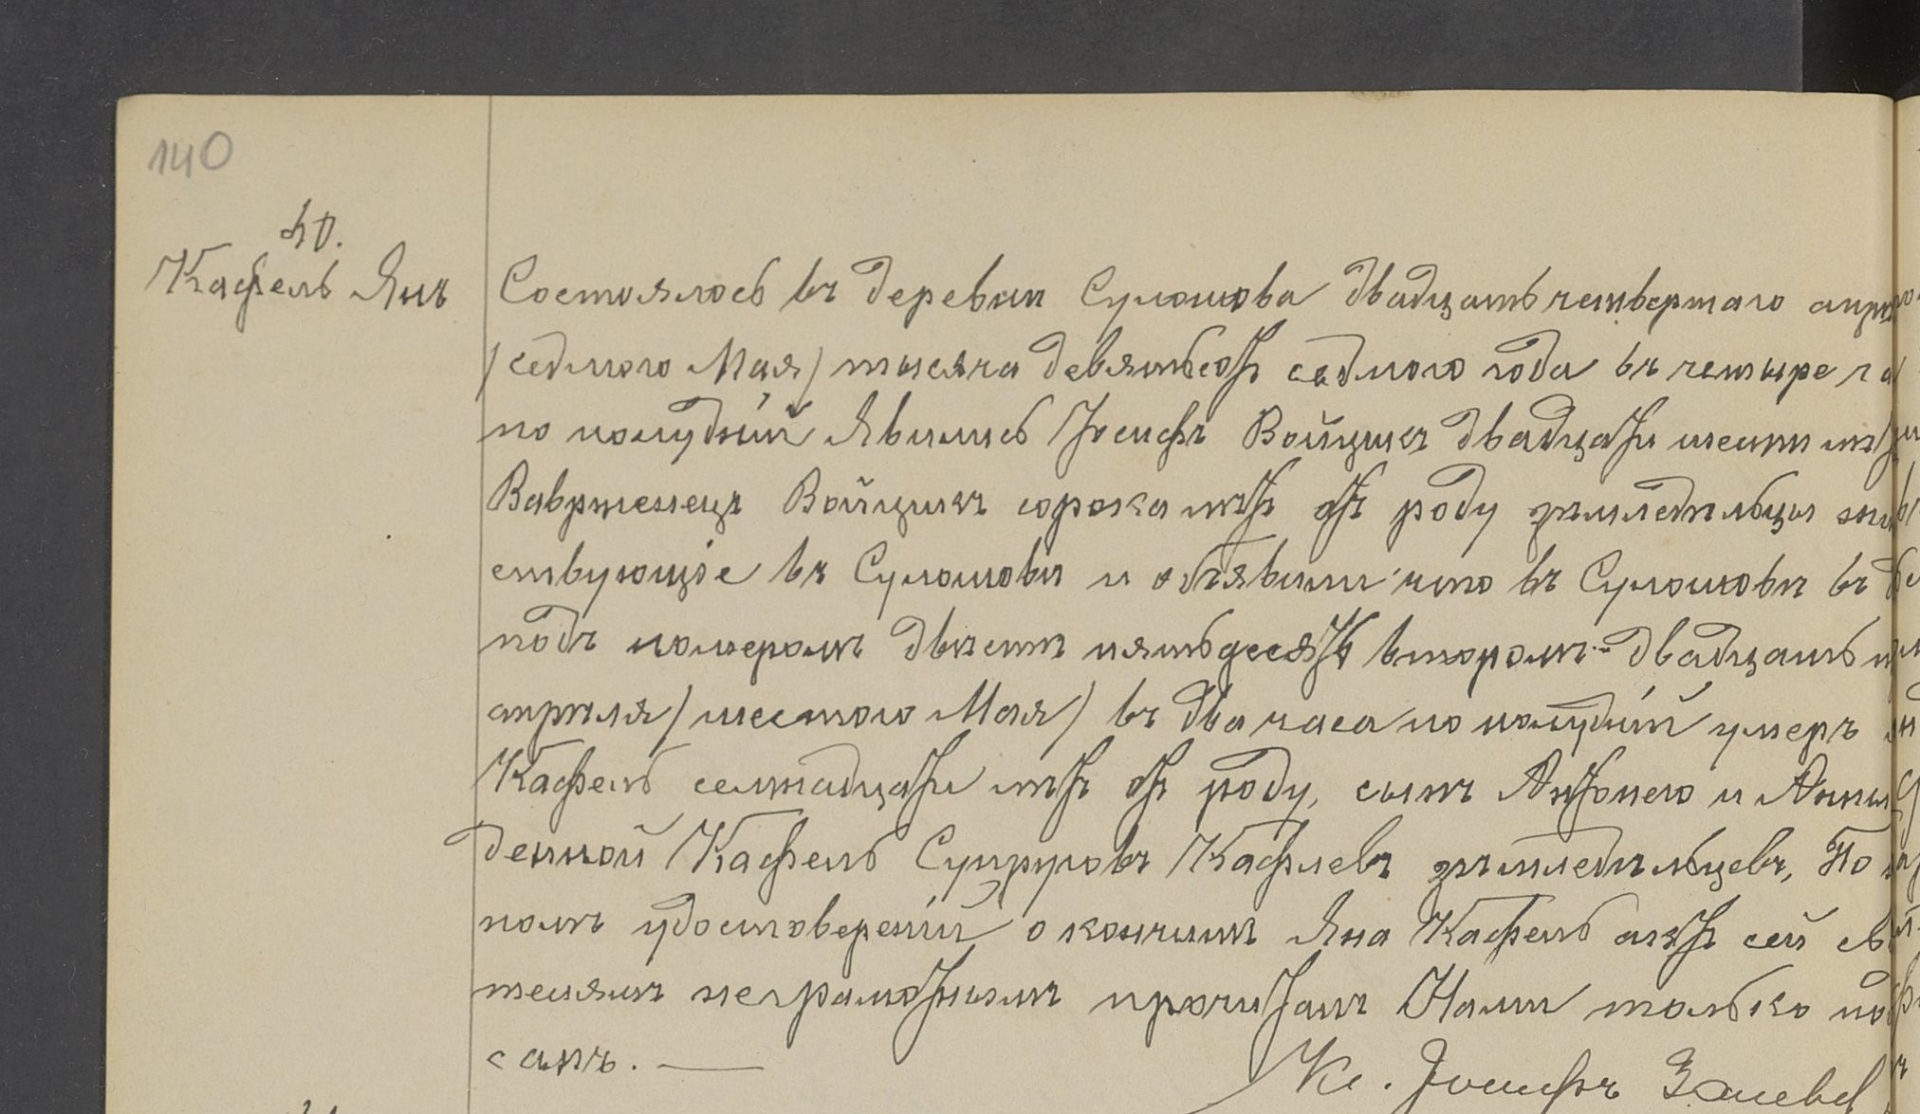 140
40.
Кафель Янъ
Состоялось въ деревни Сулошова двадцать четвертаго апрѣ
/седмого Мая/ тысяча девятьсотъ седмого года въ четыре ча
по полудній Явились Іосифъ Войцикъ двадцати шести лѣтъ
Ваврженецъ Войцикъ сорока лѣтъ отъ роду земледѣльцы жи
ствующіе въ Сулошовѣ и объявили что въ Сулошовѣ въ
подъ номеромъ двѣсти пятьдесятъ второмъ двадцать
апрѣля /шестого Мая/ въ два часа по полудній умеръ
Кафель семнадцати лѣтъ отъ роду, сынъ Антонего и Анны
денной Кафель Супруговъ Кафлевъ земледѣльцевъ, По
номъ удостоверенію о кончинѣ Яна Кафель актъ сей св
телямъ неграмотнымъ прочитанъ Нами только по
санъ.
Кс. Іосифъ